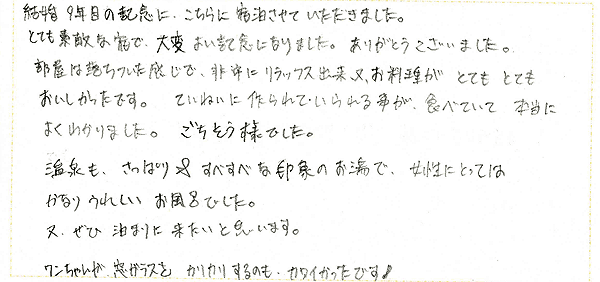 結婚9年目の記念に、こちらに宿泊させていただきました。
とても素敵な宿で、大変よい記念になりました。ありがとうございました。
部屋は落ちついた感じで、非常にリラックス出来、又、お料理が とても とても
おいしかったです。 ていねいに作られていられる事が、食べていて 本当に
よくわかりました。 ごちそう様でした。
温泉も、さっぱり すべすべな印象のお湯で、女性にとっては
かなりうれしい お風呂でした。
又、ぜひ 泊まりに来たいと思います。
ワンちゃんが、窓ガラスを カリカリするのも、カワイかったです♪